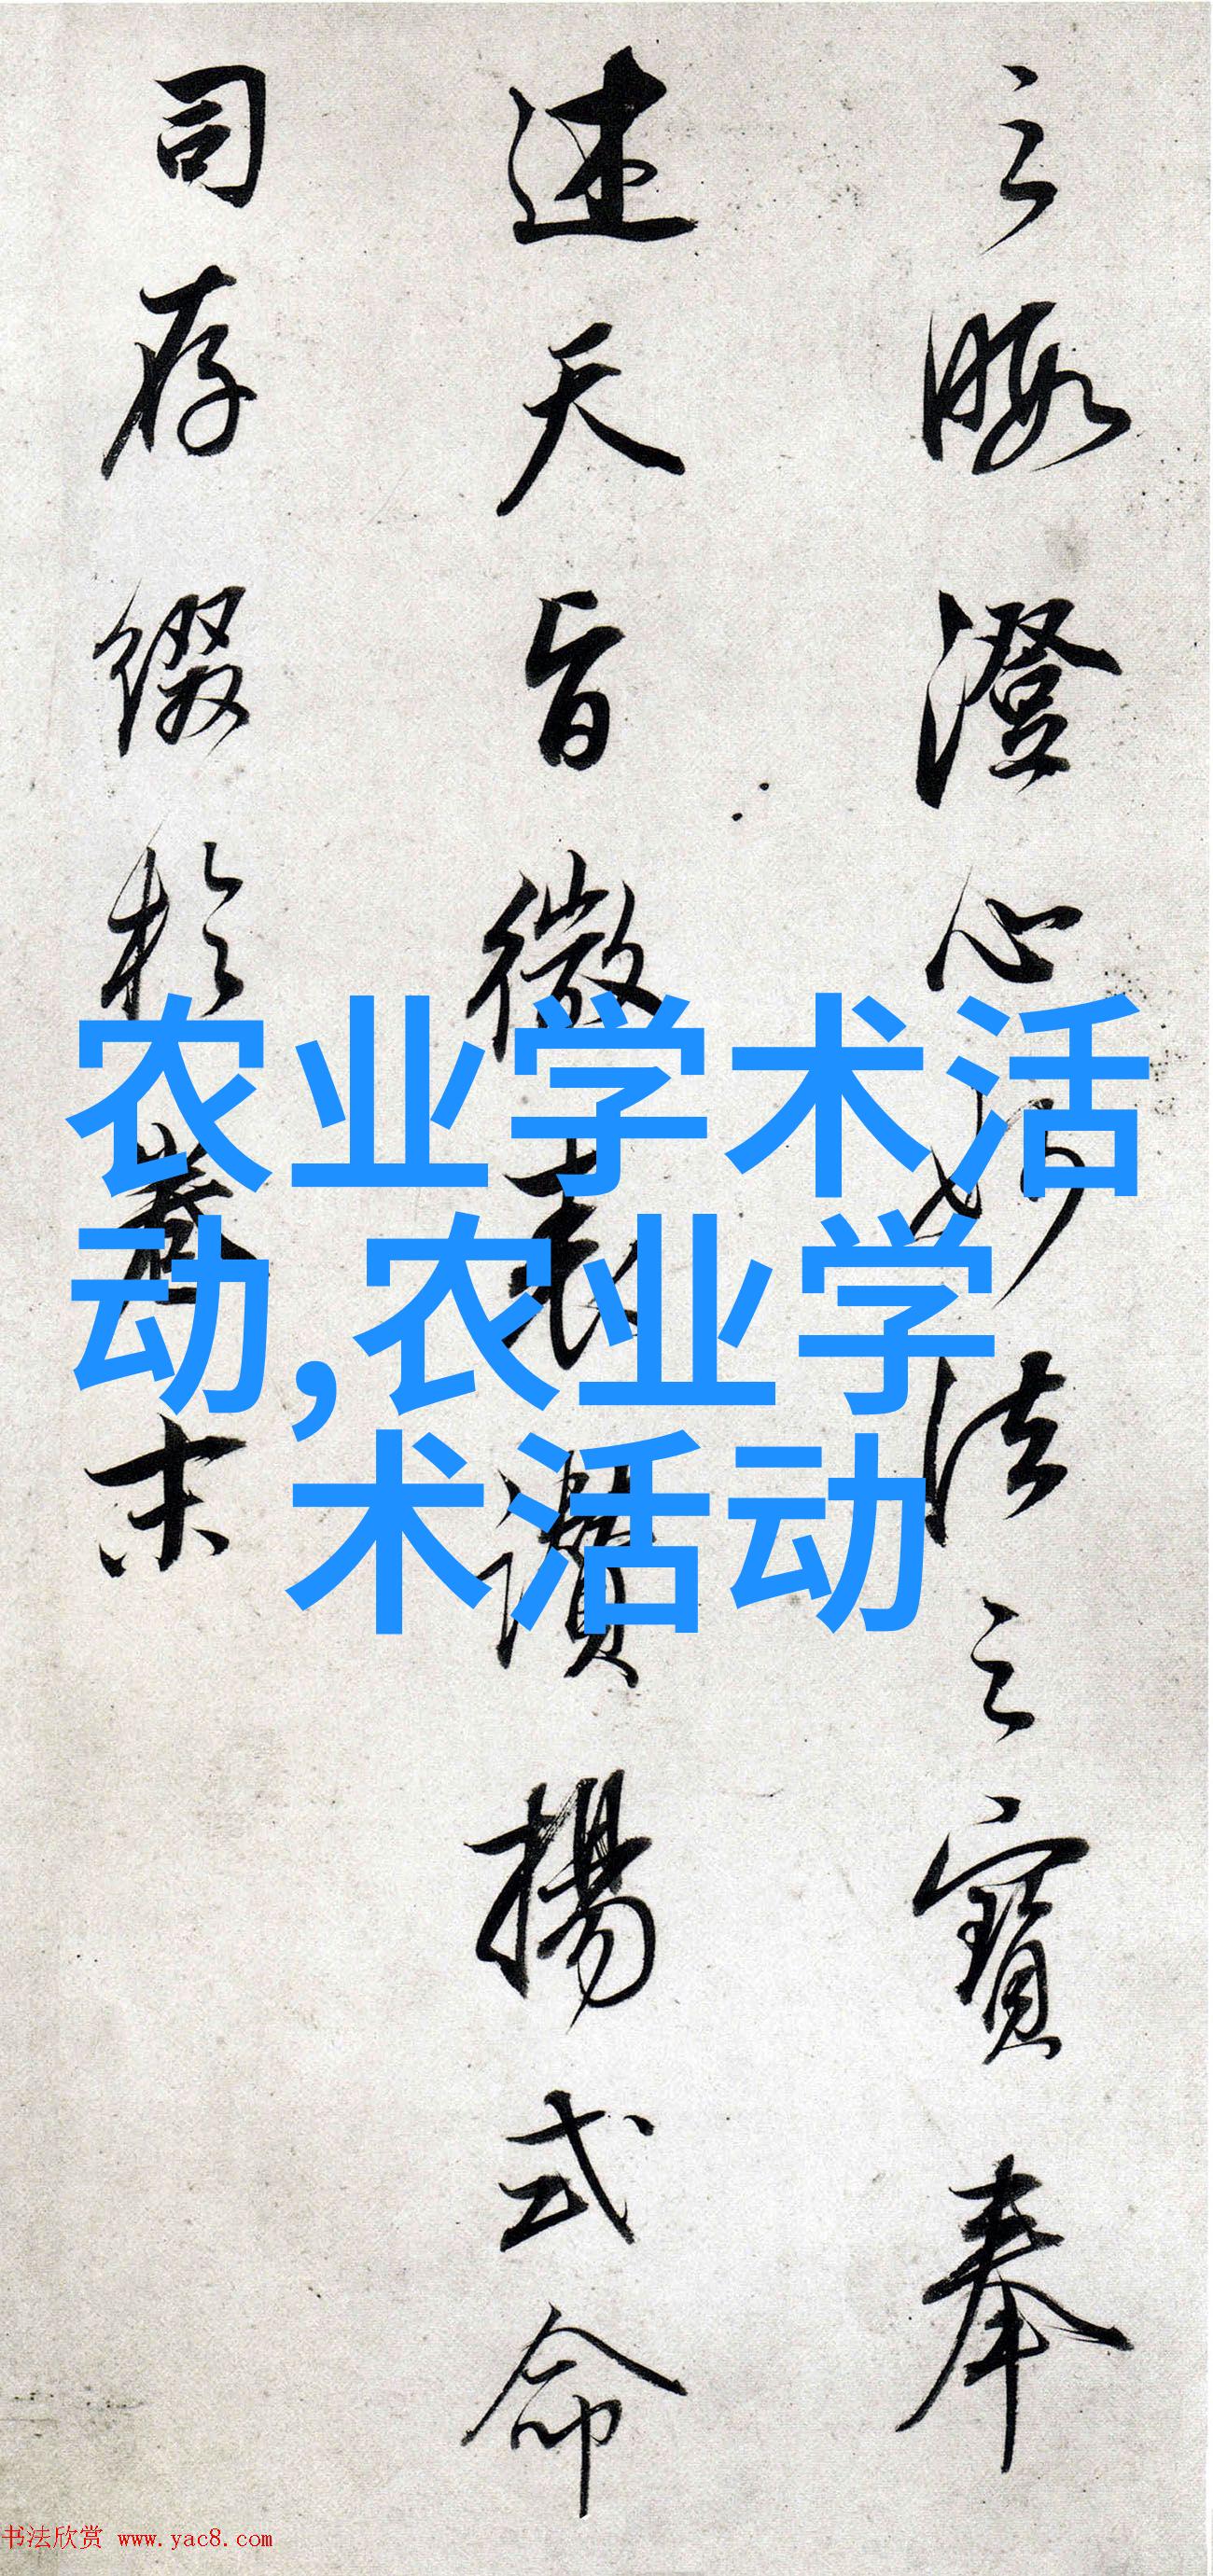 之暇澄心妙法之寶奉
述天旨微表讚揚式命
司存缀於卷末
农业学术活
动,农业学
术活动
书法欣赏 www.yac8.com